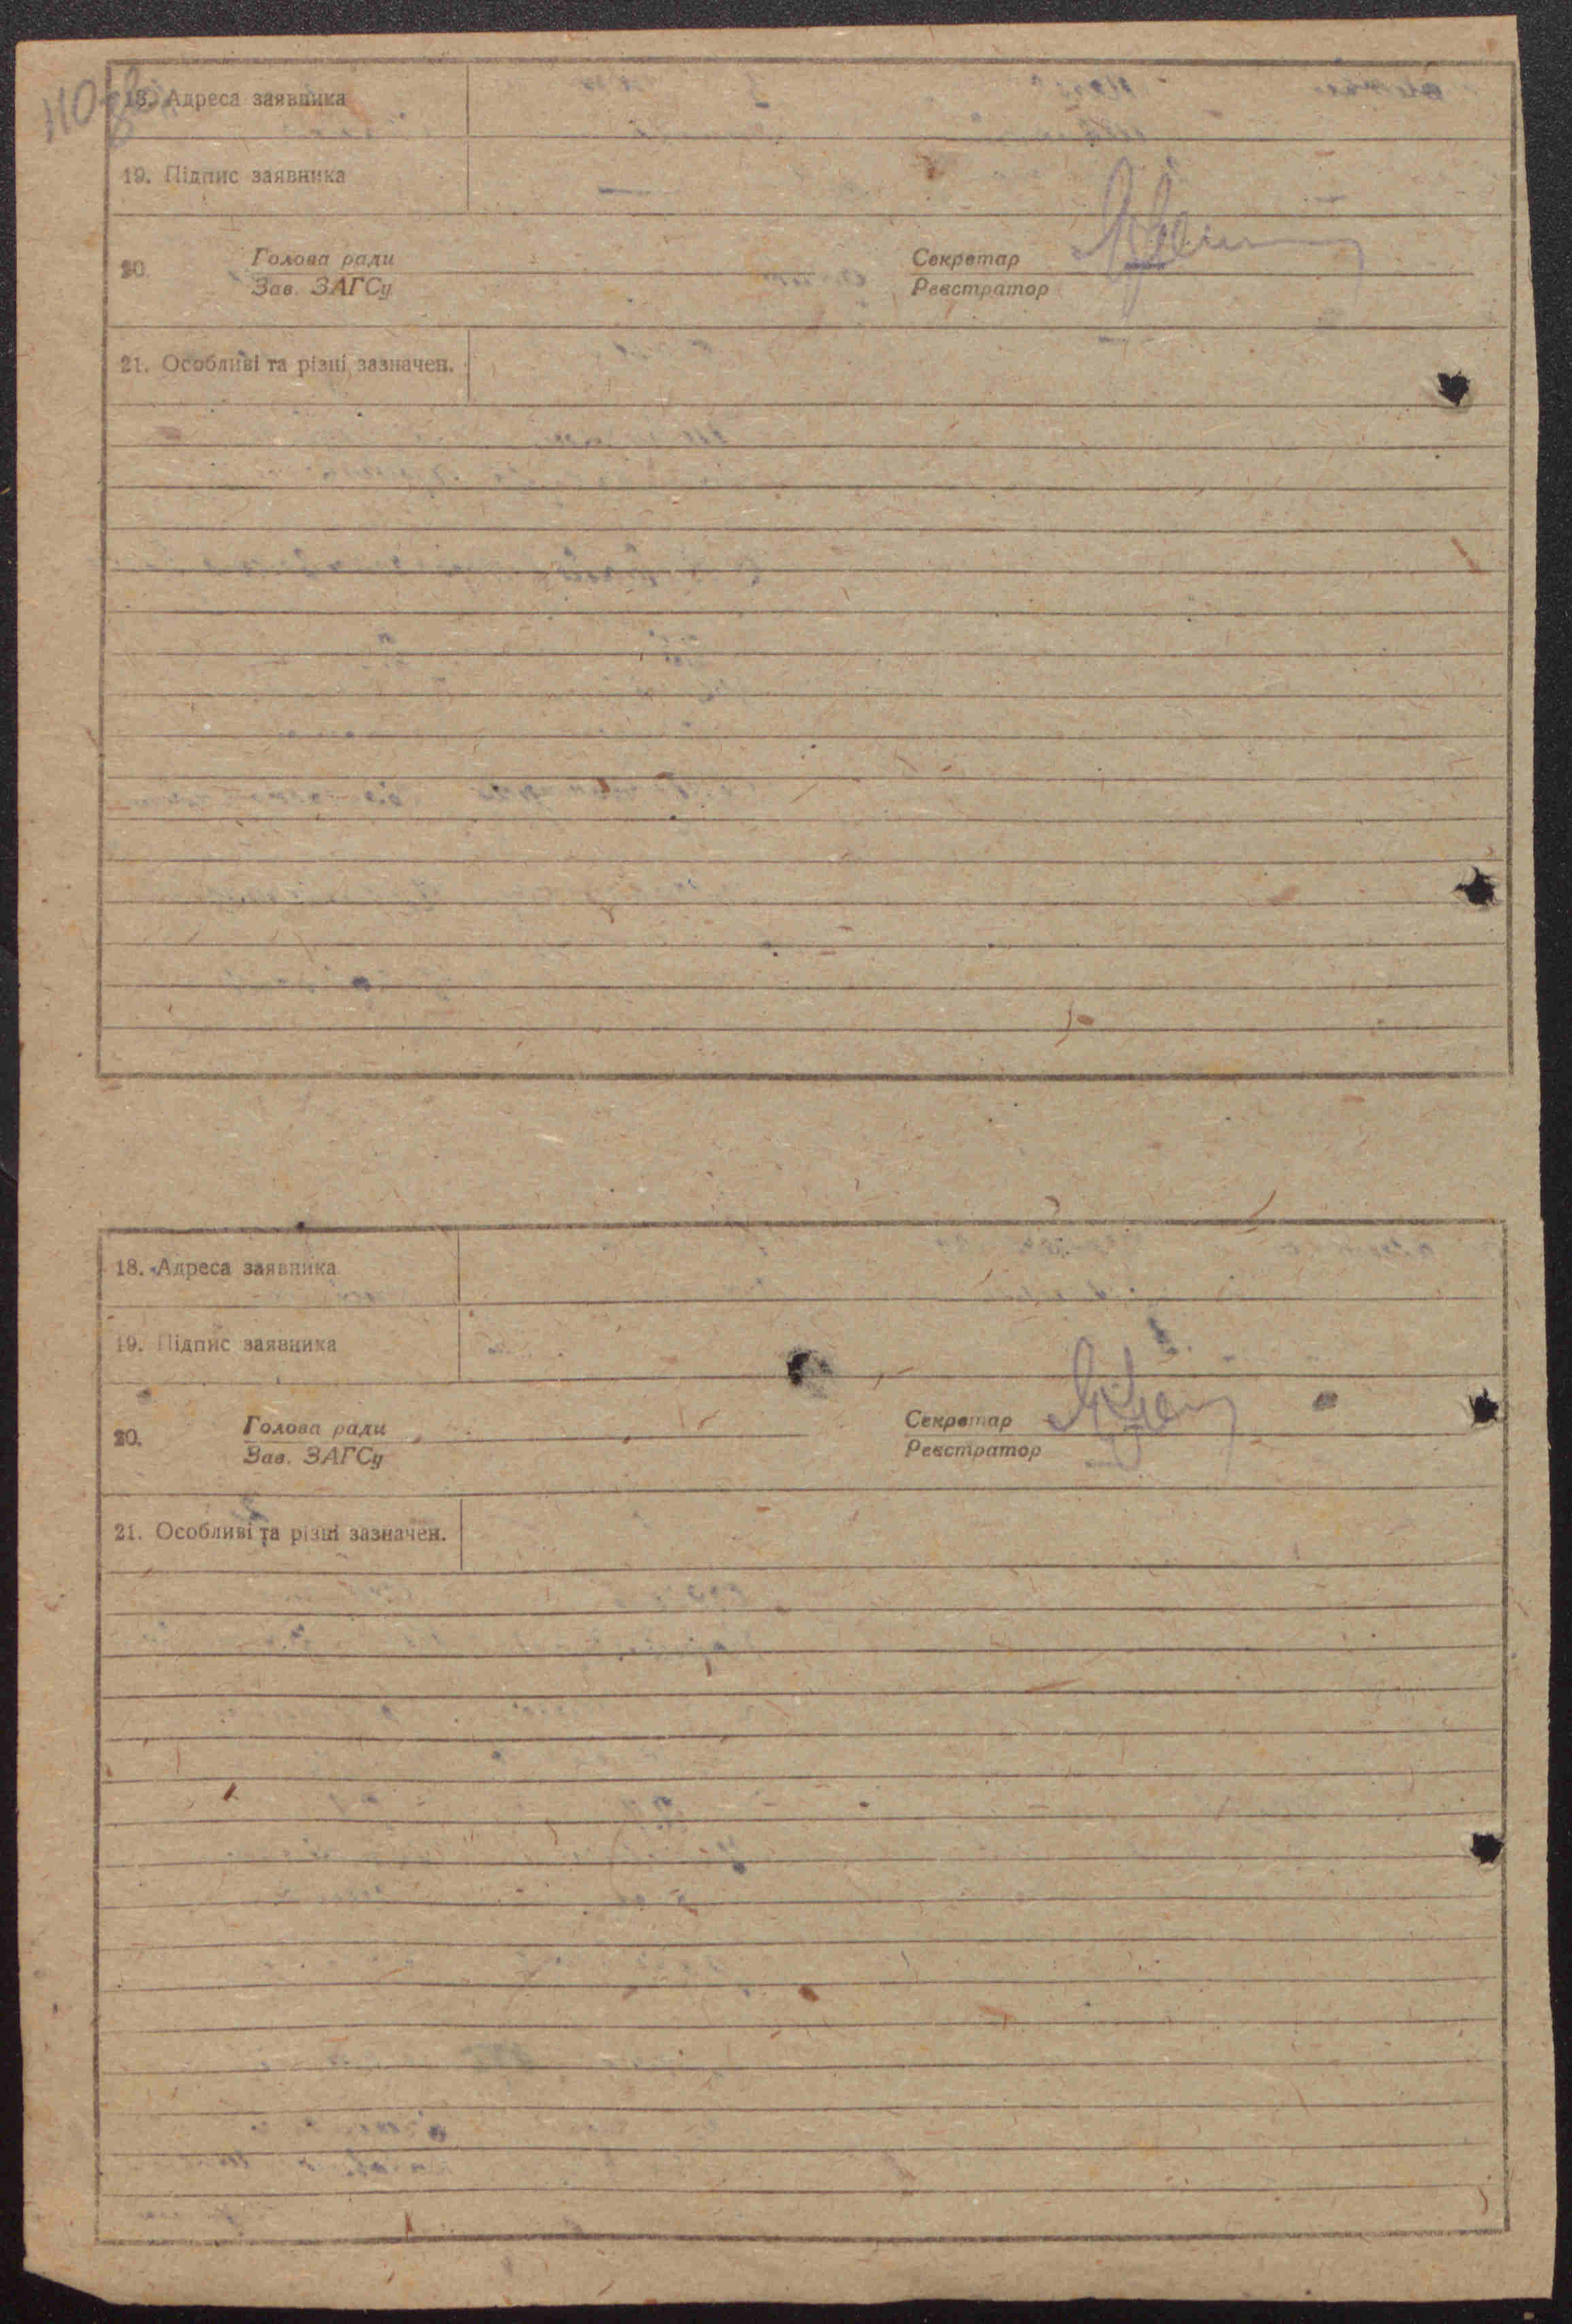 18. Адреса заявника
19. Підпис заявника
20. Голова ради Секретар
Зав. ЗАГСу Реєстратор
21. Особливі та різні зазначен.
18. Адреса заявника
19. Підпис заявника
20. Голова ради Секретар
Зав. ЗАГСу Реєстратор
21. Особливі та різні зазначен.